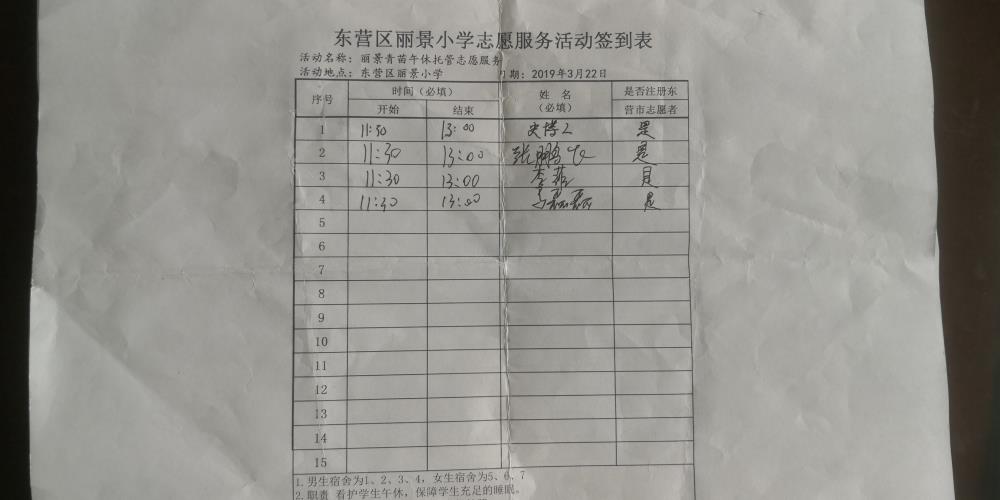 东营区丽景小学志愿服务活动签到表
活动名称：丽景青苗午休托管志愿服务
活动地点：东营区丽景小学 期：2019年3月22日
序号 时间（必填） 姓名（必填） 是否注册东营市志愿者
开始 结束
1 11:30 13:00 是
2 11:30 13:00 张鹏飞 是
3 11:30 13:00 李菲 是
4 11:30 13:00 是
5
6
7
8
9
10
11
12
13
14
15
1.男生宿舍为1、2、3、4，女生宿舍为5、6、7
2.职责 看护学生午休，保障学生充足的睡眠。